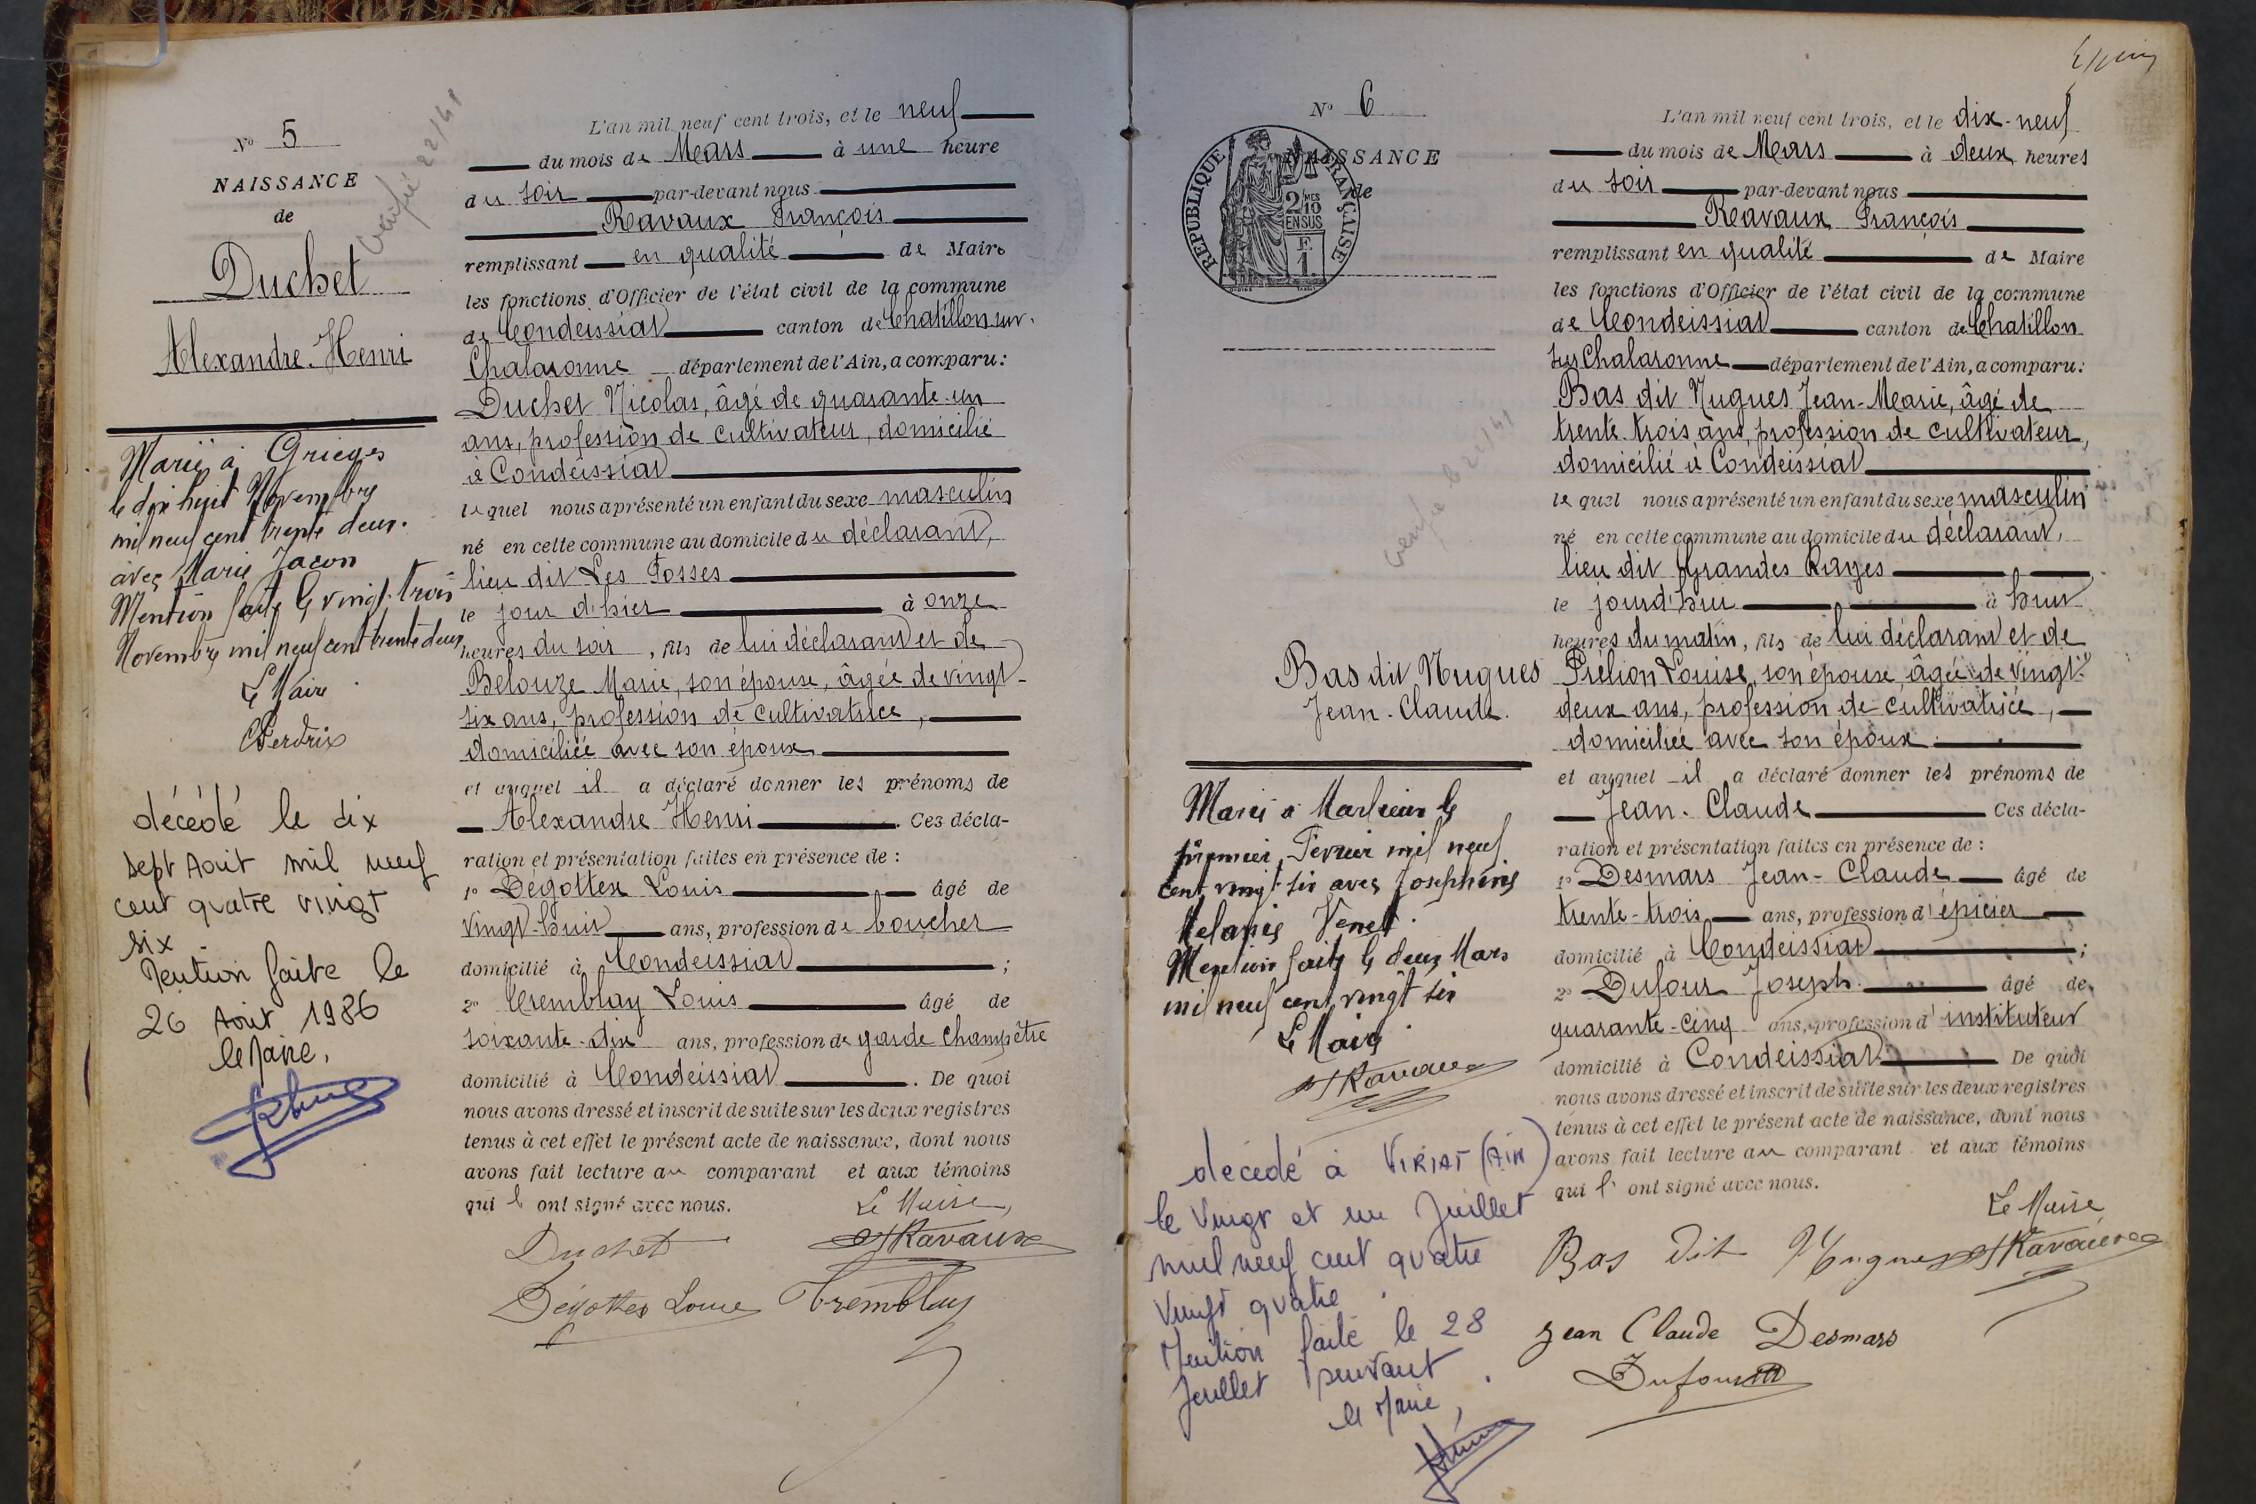 N° 5
NAISSANCE
de
Duchet
Alexandre-Henri
Marié à Grièges
le dix huit Novembre
mil neuf cent trente deux.
avec Marie Jacon
Mention faite le vingt-trois
Novembre mil neuf cent trente deux
Le Maire
CPerdrix
décédé le dix
sept Aout mil neuf
cent quatre vingt
six
Mention faite le
26 Aout 1986
le Maire,
vérifié 22/41
L'an mil neuf cent trois, et le neuf
du mois de Mars à une heure
du soir par-devant nous
Ravaux François
remplissant en qualité de Maire
les fonctions d'Officier de l'état civil de la commune
de Condeissiat canton de Chatillon sur-
Chalaronne département de l'Ain, a comparu:
Duchet Nicolas, âgé de quarante-un
ans, profession de cultivateur, domicilié
à Condeissiat
lequel nous a présenté un enfant du sexe masculin
né en cette commune au domicile du déclarant,
lieu dit Les Fosses
le jour d'hier à onze
heures du soir, fils de lui déclarant et de
Belouze Marie, son épouse, âgée de vingt-
six ans, profession de cultivatrice,
domiciliée avec son époux
et auquel il a déclaré donner les prénoms de
Alexandre Henri. Ces décla-
ration et présentation faites en présence de:
1° Dégottex Louis âgé de
vingt-huit ans, profession de boucher
domicilié à Condeissiat;
2° Tremblay Louis âgé de
soixante-dix ans, profession de garde champêtre
domicilié à Condeissiat. De quoi
nous avons dressé et inscrit de suite sur les deux registres
tenus à cet effet le présent acte de naissance, dont nous
avons fait lecture au comparant et aux témoins
qui l' ont signé avec nous.
Le Maire,
Duchet Ravaux
Dégottex Louis Tremblay
N° 6
NAISSANCE
de
REPUBLIQUE FRANÇAISE
2/10 MES
EN SUS
F.
1.
Bas dit Nugues
Jean-Claude.
Marié à Marlieux le
premier Fevrier mil neuf
cent vingt six avec Josephine
Melanie Venet.
Mention faite le deux Mars
mil neuf cent vingt six
Le Maire
Ravaux
décédé à VIRIAT (AIN)
le Vingt et un Juillet
mil neuf cent quatre
vingt quatre.
Mention faite le 28
Juillet suivant.
le Maire,
L'an mil neuf cent trois, et le dix-neuf
du mois de Mars à deux heures
du soir par-devant nous
Ravaux François
remplissant en qualité de Maire
les fonctions d'Officier de l'état civil de la commune
de Condeissiat canton de Chatillon
sur Chalaronne département de l'Ain, a comparu:
Bas dit Nugues Jean-Marie, âgé de
trente-trois ans, profession de cultivateur,
domicilié à Condeissiat
lequel nous a présenté un enfant du sexe masculin
né en cette commune au domicile du déclarant,
lieu dit Grandes Rayes
le jourd'hui à huit
heures du matin, fils de lui déclarant et de
Prélion Louise, son épouse, âgée de vingt-
deux ans, profession de cultivatrice,
domiciliée avec son époux
et auquel il a déclaré donner les prénoms de
Jean-Claude Ces décla-
ration et présentation faites en présence de:
1° Desmars Jean-Claude âgé de
trente-trois ans, profession d'épicier
domicilié à Condeissiat;
2° Dufour Joseph âgé de
quarante-cinq ans, profession d'instituteur
domicilié à Condeissiat De quoi
nous avons dressé et inscrit de suite sur les deux registres
tenus à cet effet le présent acte de naissance, dont nous
avons fait lecture au comparant et aux témoins
qui l' ont signé avec nous.
Le Maire
Bas dit Nugues Ravaux
Jean Claude Desmars
Dufour